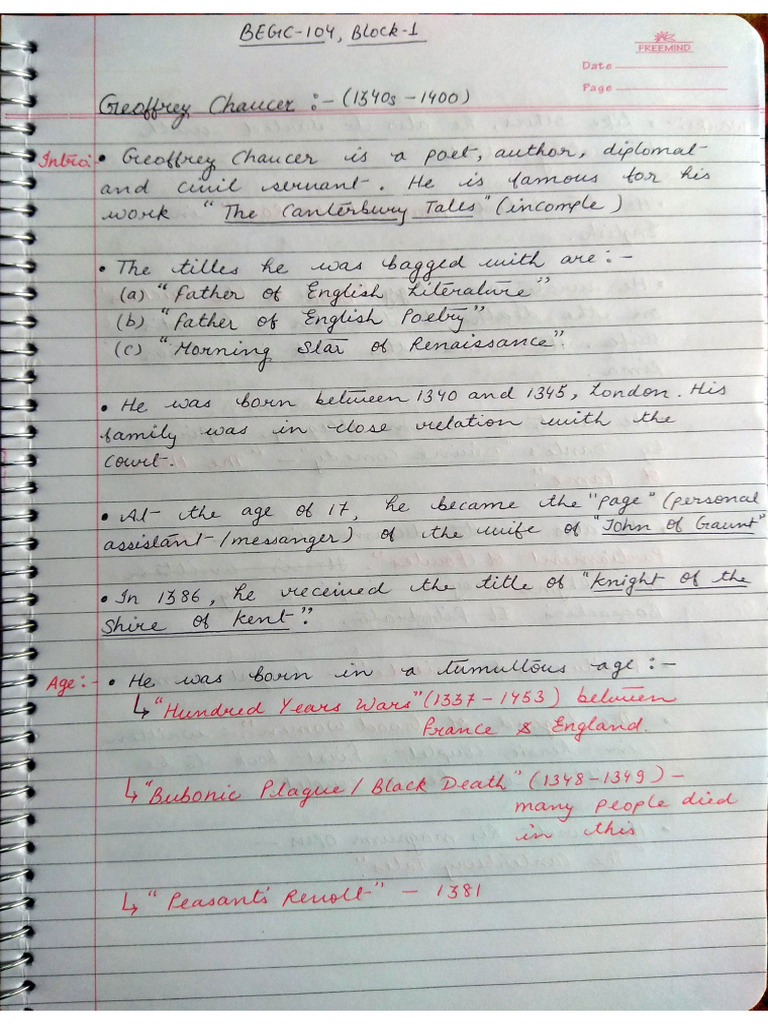 BEGC-104, Block-1
FREEMIND
Date
Page
Geoffrey Chaucer :- (1340s - 1400)
Intro:- • Geoffrey Chaucer is a poet, author, diplomat
and civil servant. He is famous for his
work "The Canterbury Tales" (incomple)
• The titles he was bagged with are :-
(a) "Father of English Literature"
(b) "Father of English Poetry"
(c) "Morning Star of Renaissance".
• He was born between 1340 and 1345, London. His
family was in close relation with the
court.
• At the age of 17, he became the "page" (personal
assistant/messanger) of the wife of "John of Gaunt"
• In 1386, he received the title of "Knight of the
Shire of Kent".
Age :- • He was born in a tumultous age :-
↳ "Hundred Years Wars" (1337 - 1453) between
France & England.
↳ "Bubonic Plague / Black Death" (1348-1349) -
many people died
in this
↳ "Peasant's Revolt" - 1381